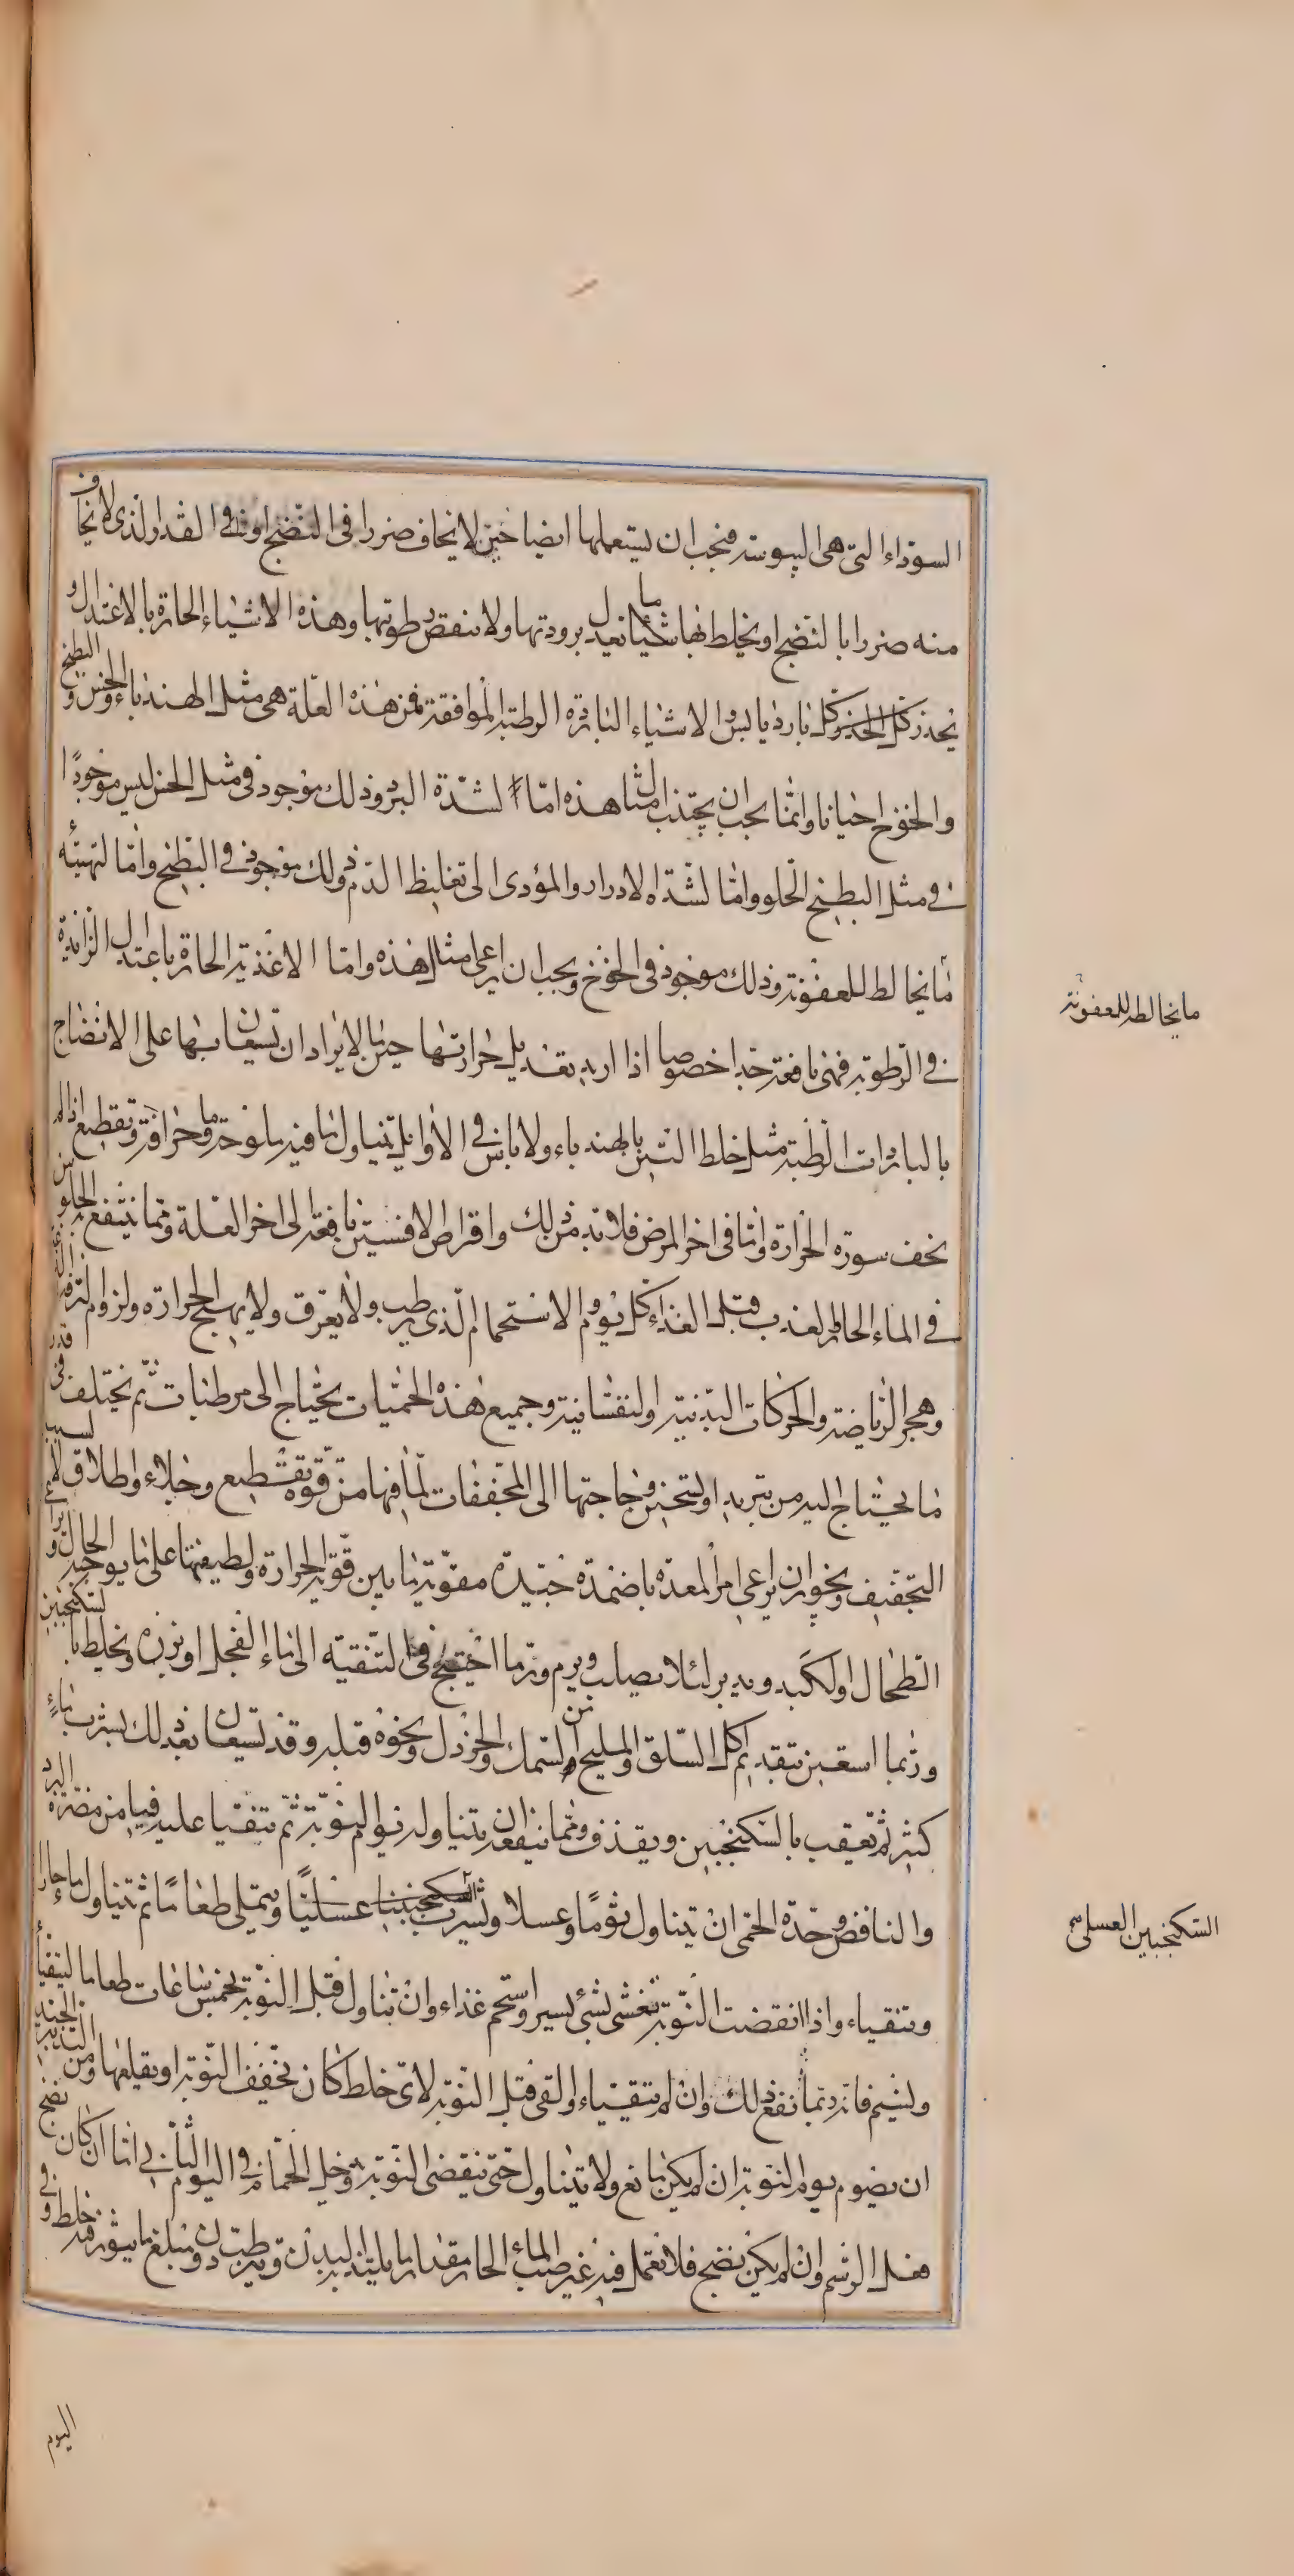 السوداء التى هى اليبوسة فيجب ان يستعملها ايضا حين لا يخاف ضررا فى النضج او فى القدر الذى لا يخاف
منه ضررا بالنضج او يخلط بها شيئا ما يعدل برودتها ولا ينقص رطوبتها وهذه الاشياء الحارة بالاعتدال و
يحذر كل الحذر كل بارد يابس والاشياء الباردة الرطبة الموافقة فى هذه العلة هى مثل الهندباء والخس و البطيخ
والخوخ احيانا وانما يجب ان يجتنب امثال هذه اما لشدة البرد وذلك موجود فى مثل الخس ليس موجودًا
فى مثل البطيخ الحلو واما لشدة الادرار والمؤدى الى تغليظ الدم وذلك موجود فى البطيخ واما لتهيئه
ما يخالط للعفونة وذلك موجود فى الخوخ ويجب ان يراعى امثال هذه واما الاغذية الحارة باعتدال الزايدة
فى الرطوبة فهى نافعة جدا خصوصا اذا اريد تعديل حرارتها حين ما لا يراد ان تستعان بها على الانضاج
بالباردات الرطبة مثل خلط التين بالهندباء ولا باس فى الاوايل بتناول ما فيه ملوحة ما وحرافة وتقطيع اذا لم
يخف سورة الحرارة واما فى اخر المرض فلا بد من ذلك واقراص الافسنتين نافعة الى اخر العلة ومما ينتفع الجلوس
فى الماء الحار العذب قبل الغذاء كل يوم والاستحمام الذى يرطب ولا يعرق ولا يهيج الحرارة ولزوم الترفه
وهجر الرياضة والحركات البدنية والنفسانية وجميع هذه الحميات يحتاج الى مرطبات ثم يختلف فى قدر
ما يحتاج اليه من تبريد او تسخين وحاجتها الى المجففات لما فيها من قوة تقطيع وجلاء واطلاق لا لسبب
التجفيف ويجوز ان يراعى امر المعدة باضمدة جيدة مقوية ما بين قوية الحرارة ولطيفتها على ما يوجبه الحال و
الطحال والكبد ويدبر لئلا يصلب ويرم وربما احتيج فى التنقية الى ماء الفجل او بزره ويخلط بالسكنجبين
وربما استعين بتقديم اكل السلق والمليح من السمك والخردل ونحوه قبله وقد تستعان بعد ذلك بشرب ماءٍ
كثير ثم تعقب بالسكنجبين ويقذف ومما ينفع ان يتناوله فى يوم النوبة ثم يتقيا عليه فيامن مضرة البرد
والنافض وحدة الحمى ان يتناول ثومًا وعسلا وتشرب السكنجبينا عسليًا ويمتلى طعامًا ثم يتناول ماء حارا
ويتقياء واذا انقضت النوبة تغشى بشئ يسير واستحم غذاء وان تناول قبل النوبة بخمس ساعات طعاما ليتقيأ
ولينم فانه ربما نفع ذلك وان لم يتقياء والقى قبل النوبة لاى خلط كان تخفف النوبة او يقلعها ومن التدبير الجيد
ان يصوم يوم النوبة ان لم يكن مانع ولا يتناول حتى ينقضى النوبة ودخل الحمام فى اليوم الثانى اما ان كان نضج
فعلى الرسم وان لم يكن نضج فلا تعمل فيه غير صب الماء الحار مقدار ما يلتذ البدن ويرطب دون مبلغ ما يثور فيه خلط و فى
اليوم
ما يخالطه للعفونة
السكنجبين العسلى